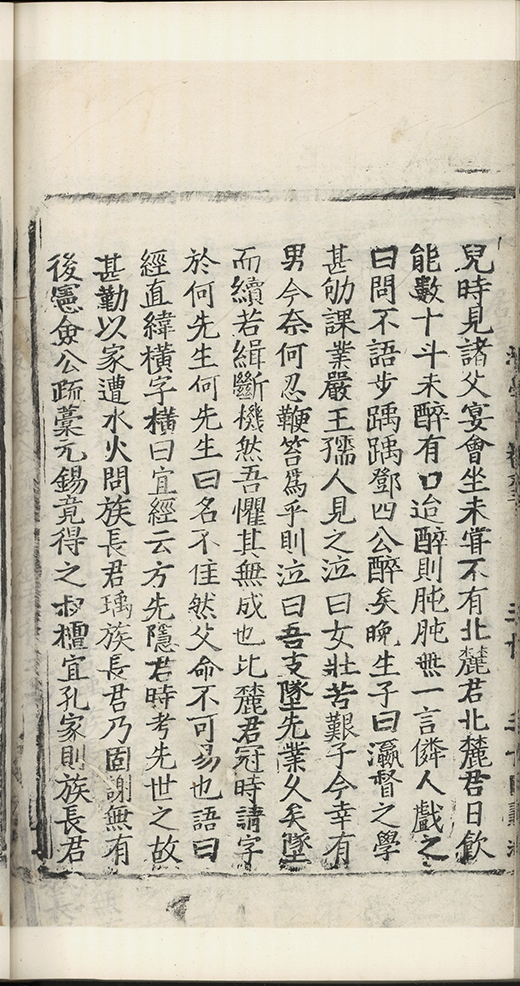 兒時見諸父宴會坐未甞不有北麓君北麓君日飲
能數十斗未醉有口迨醉則肫肫無一言儕人戲之
曰問不語步踽踽鄧四公醉矣晚生子曰瀛督之學
甚劬課業嚴王孺人見之泣曰女壯苦艱子今幸有
男今奈何忍鞭笞爲乎則泣曰吾支墜先業久矣墜
而續若緝斷機然吾懼其無成也比麓君冠時請字
於何先生何先生曰名不佳然父命不可易也語曰
經直緯橫字橫曰宜經云方先隱君時考先世之故
甚勤以家遭水火問族長君瑀族長君乃固謝無有
後憲僉公疏藁元錫竟得之叔檀宜孔家則族長君